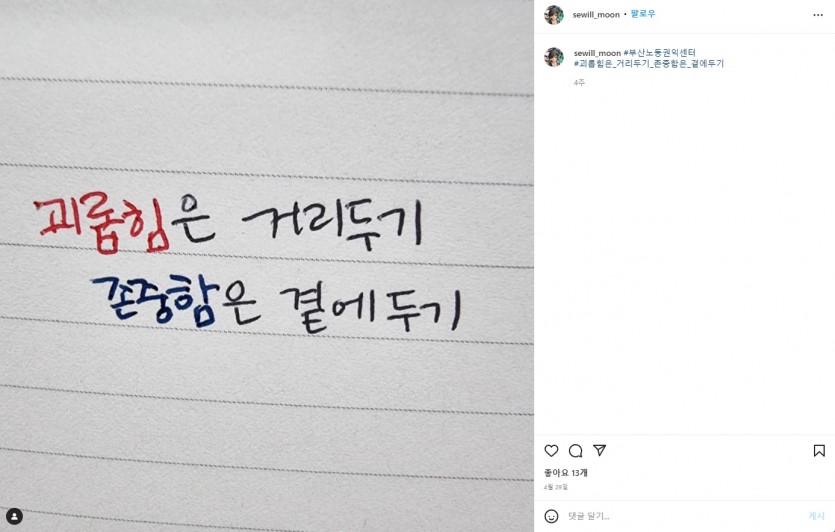 괴롭힘은 거리두기
존중함은 곁에두기
sewill_moon • 팔로우
sewill_moon #부산노동권익센터
#괴롭힘은_거리두기_존중함은_곁에두기
4주
좋아요 13개
4월 28일
댓글 달기...
게시